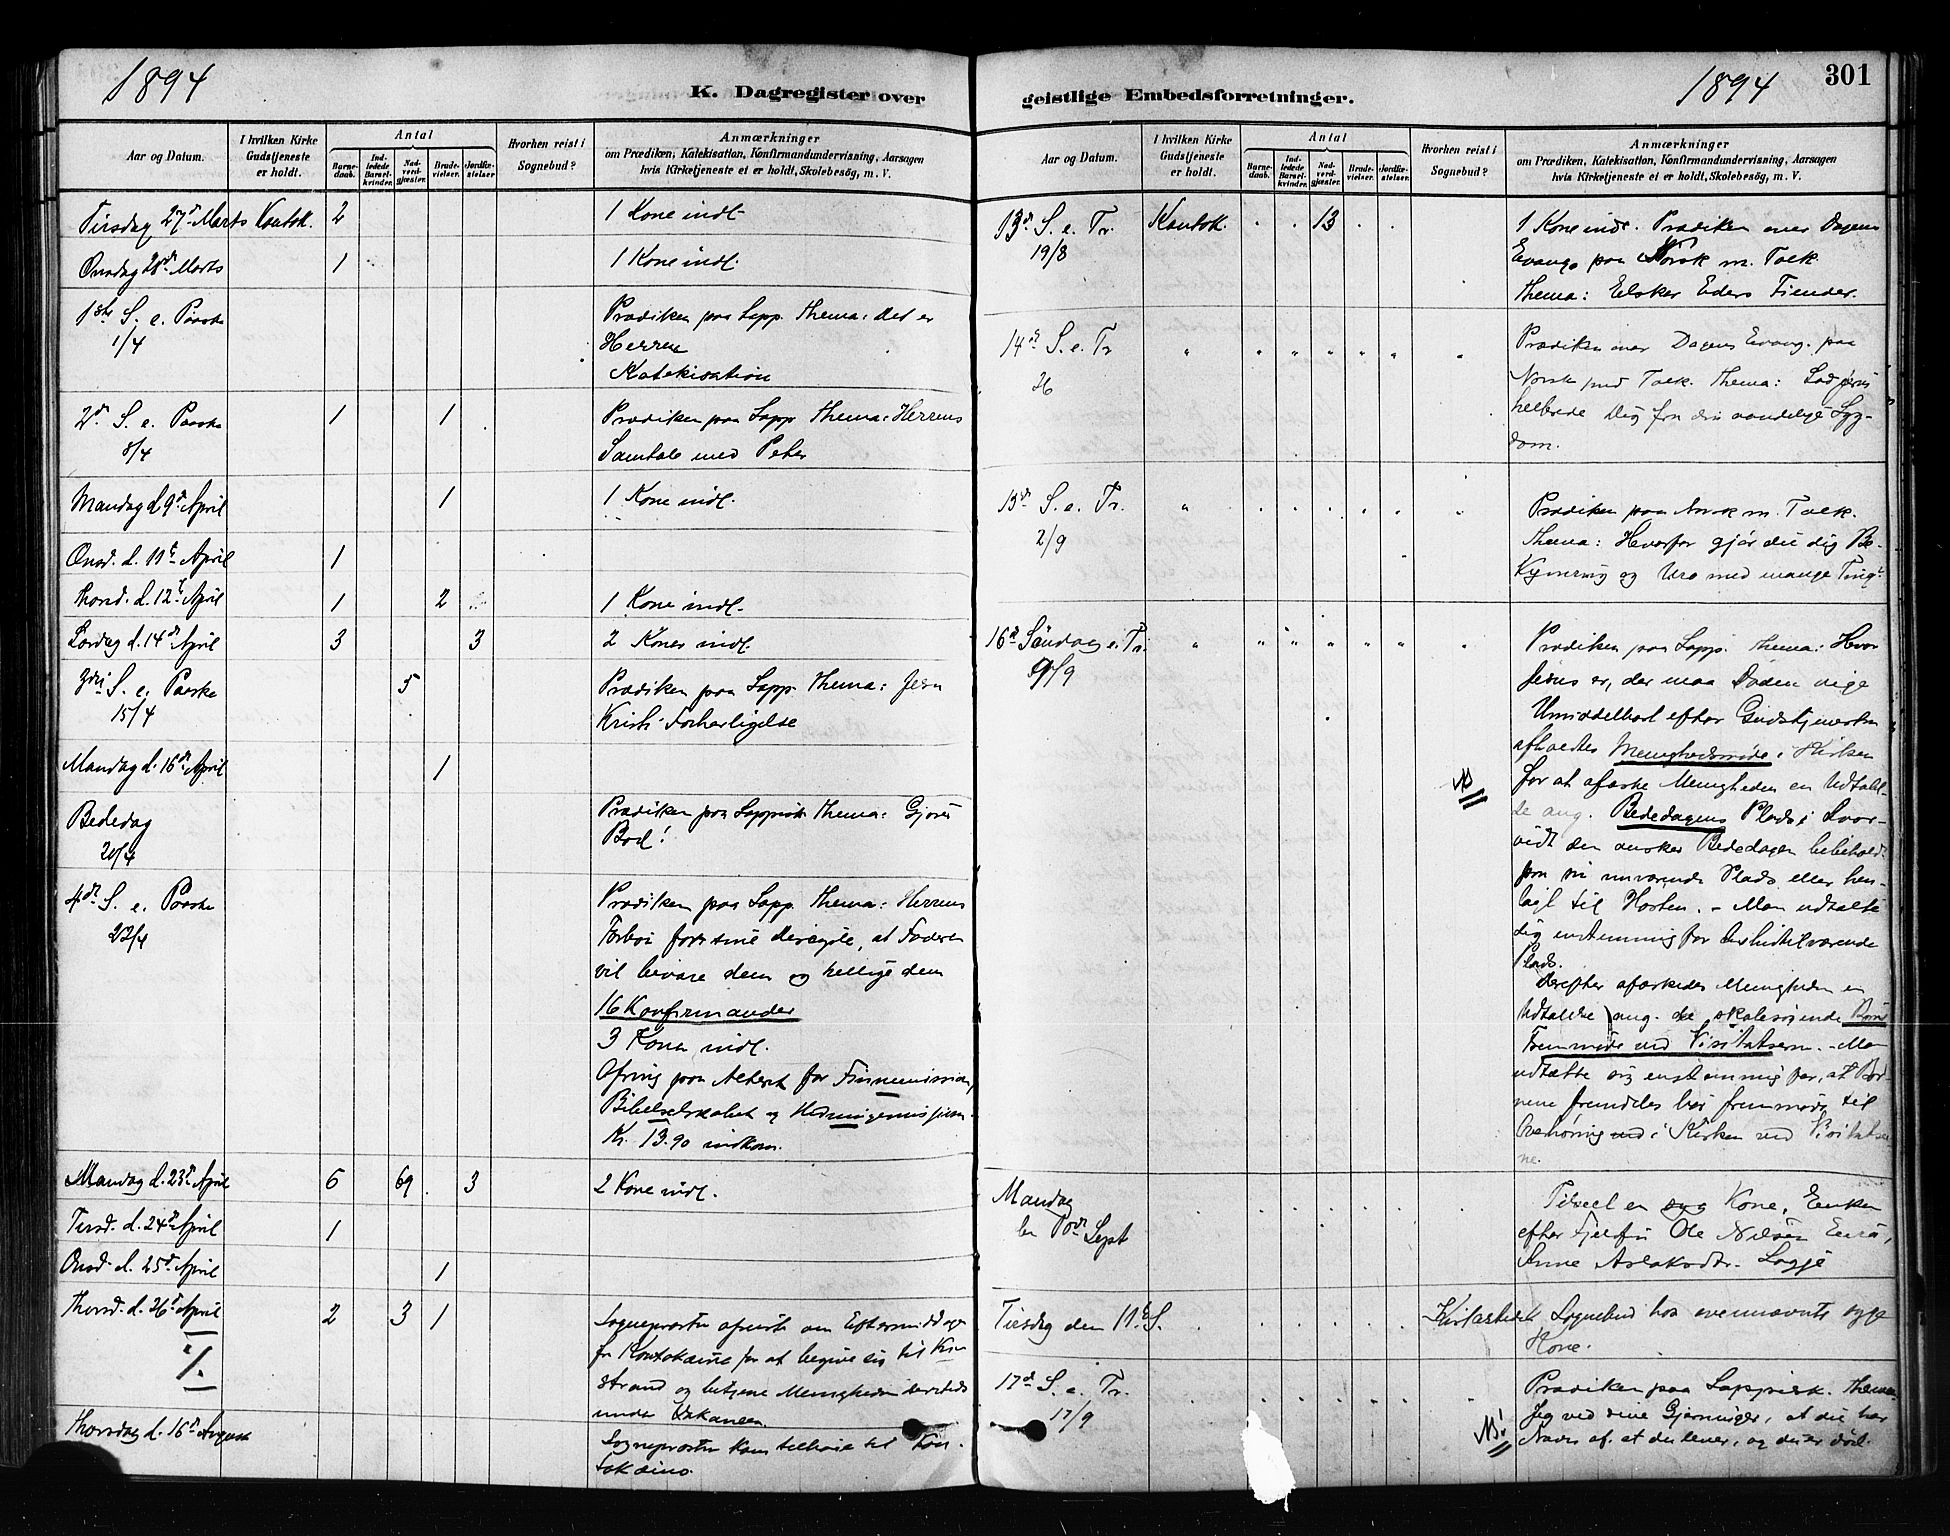 1894
K. Dagregister over
Aar og Datum.
I hvilken Kirke Gudstjeneste er holdt.
Antal
Barnedaab.
Indledede Barselkvinder.
Nadverdgjæster.
Brudevielser.
Jordfæstelser
Hvorhen reist i Sognebud?
Anmærkninger
om Prædiken, Katekisation, Konfirmandundervisning, Aarsagen
hvis Kirketjeneste ei er holdt, Skolebesög, m. V.
Tirsdag 27d Marts Kautok. 2 1 Kone indl.
Onsdag 28d Marts 1 1 Kone indl.
1ste S. e. Paaske Prædiken paa Lapp. Thema: Det er
1/4 Herren
Katekisation
2d S. e. Paaske 1 1 Prædiken paa Lapp Thema: Herrens
8/4 Samtale med Peter
Mandag d. 9d April 1 1 Kone indl.
Onsd. d. 11te April 1
Thorsd. d. 12te April 1 2 1 Kone indl.
Lørdag d. 14d April 3 3 2 Koner indl.
3die S. e. Paaske 5 Prædiken paa Lapp. Thema: Jesu
15/4 Kristi Forherligelse
Mandag d. 16d April 1
Bededag Prædiken paa Lappisk Thema: Gjører
20/4 Bod!
4d S. e. Paaske Prædiken paa Lapp. Thema: Herrens
22/4 Forbøn for sine Disciple, at Faderen
vil bevare dem og hellige dem
16 Konfirmander
3 Koner indl.
Ofring paa Alteret for Finnemission,
Bibelselskabet og Hedningemissionen.
Kr. 13.90 indkom.
Mandag d. 23d April 6 69 3 2 Kone indl.
Tirsd. d. 24d April 1
Onsd. d. 25d April 1
Thorsd. d. 26d April 2 3 1 Sognepresten afreiste om Eftermiddagen
fr Kautokeino for at begive sig til
strand og betjene Menigheden
under Vakancen
Thorsdag d. 16d August Sognepresten kom tilbage til Kau-
tokeino.
geistlige Embedsforretninger.
1894
301
Aar og Datum.
I hvilken Kirke Gudstjeneste er holdt.
Antal
Barnedaab.
Indledede Barselkvinder.
Nadverdgjæster.
Brudevielser.
Jordfæstelser.
Hvorhen reist i Sognebud?
Anmærkninger
om Prædiken, Katekisation, Konfirmandundervisning, Aarsagen
hvis Kirketjeneste ei er holdt, Skolebesög, m. V.
13d S. e. Tr. Kautok. . . 13 . . 1 Kone indl. Prædiken over Dagens
19/8 Evang. paa Norsk m. Tolk.
Thema: Elsker Eders Fiender.
14d S. e. Tr " " " " " " " Prædiken over Dagens Evang. paa
26 Norsk med Tolk. Thema: Lad Jesus
helbrede Dig fra din aandelige Syg-
dom.
15d S. e. Tr. " Prædiken paa Norsk m. Tolk.
2/9 Thema: Hvorfor gjør du dig Be-
kymring og Uro med mange Ting?
16d Søndag e. Tr. " " " " " " " Prædiken paa Lapp. Thema: Hvor
9/9 Jesus er, der maa Døden vige
Umiddelbart efter Gudstjenesten
afholdtes Menighedsmøde i Kirken
for at afæske Menigheden en Udtalel-
se ang. Bededagens Plads, hvor-
vidt den ønsker Bededagen bibeholdt
paa sin nuværende Plads eller hen-
lagt til Høsten. - Man udtalte
sig enstemmig for den hidtilværende
Plads.
Derefter afæskedes Menigheden en
Udtalelse ang. de skolesøgende Børns
Fremmøde ved Visitatsern. - Man
udtalte sig enstemmig for, at Bør-
nene fremdeles bør fremmøde til
Overhøring i Kirken ved Visitatser-
ne.
Mandag Tilseet en syg Kone, Enken
den 10de Sept efter Fjeldfin Ole Nilsen Eira,
Anne Aslaksdtr. Logje
Tirsdag den 11te S. Sognebud hos ovennævnte syge
Kone.
17d S. e. Tr. Prædiken paa Lappisk. Thema:
17/9 Jeg ved dine Gjerninger, at du har
Navn af, at du lever, og du er død.